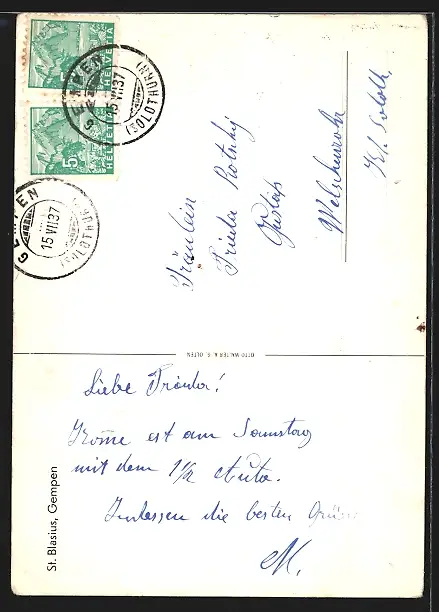 HELVETIA
5
HELVETIA
GEMPEN
15 VII 37
(SOLOTHURN)
GEMPEN
15 VII 37
(SOLOTHURN)
Fräulein
Frieda
Welschenrohr
Kt. Soloth.
OTTO WALTER A. G. OLTEN
St. Blasius, Gempen
Liebe Frieda!
Komme est am Samstag
mit dem 1½ Auto.
Indessen die besten Grüsse
M.